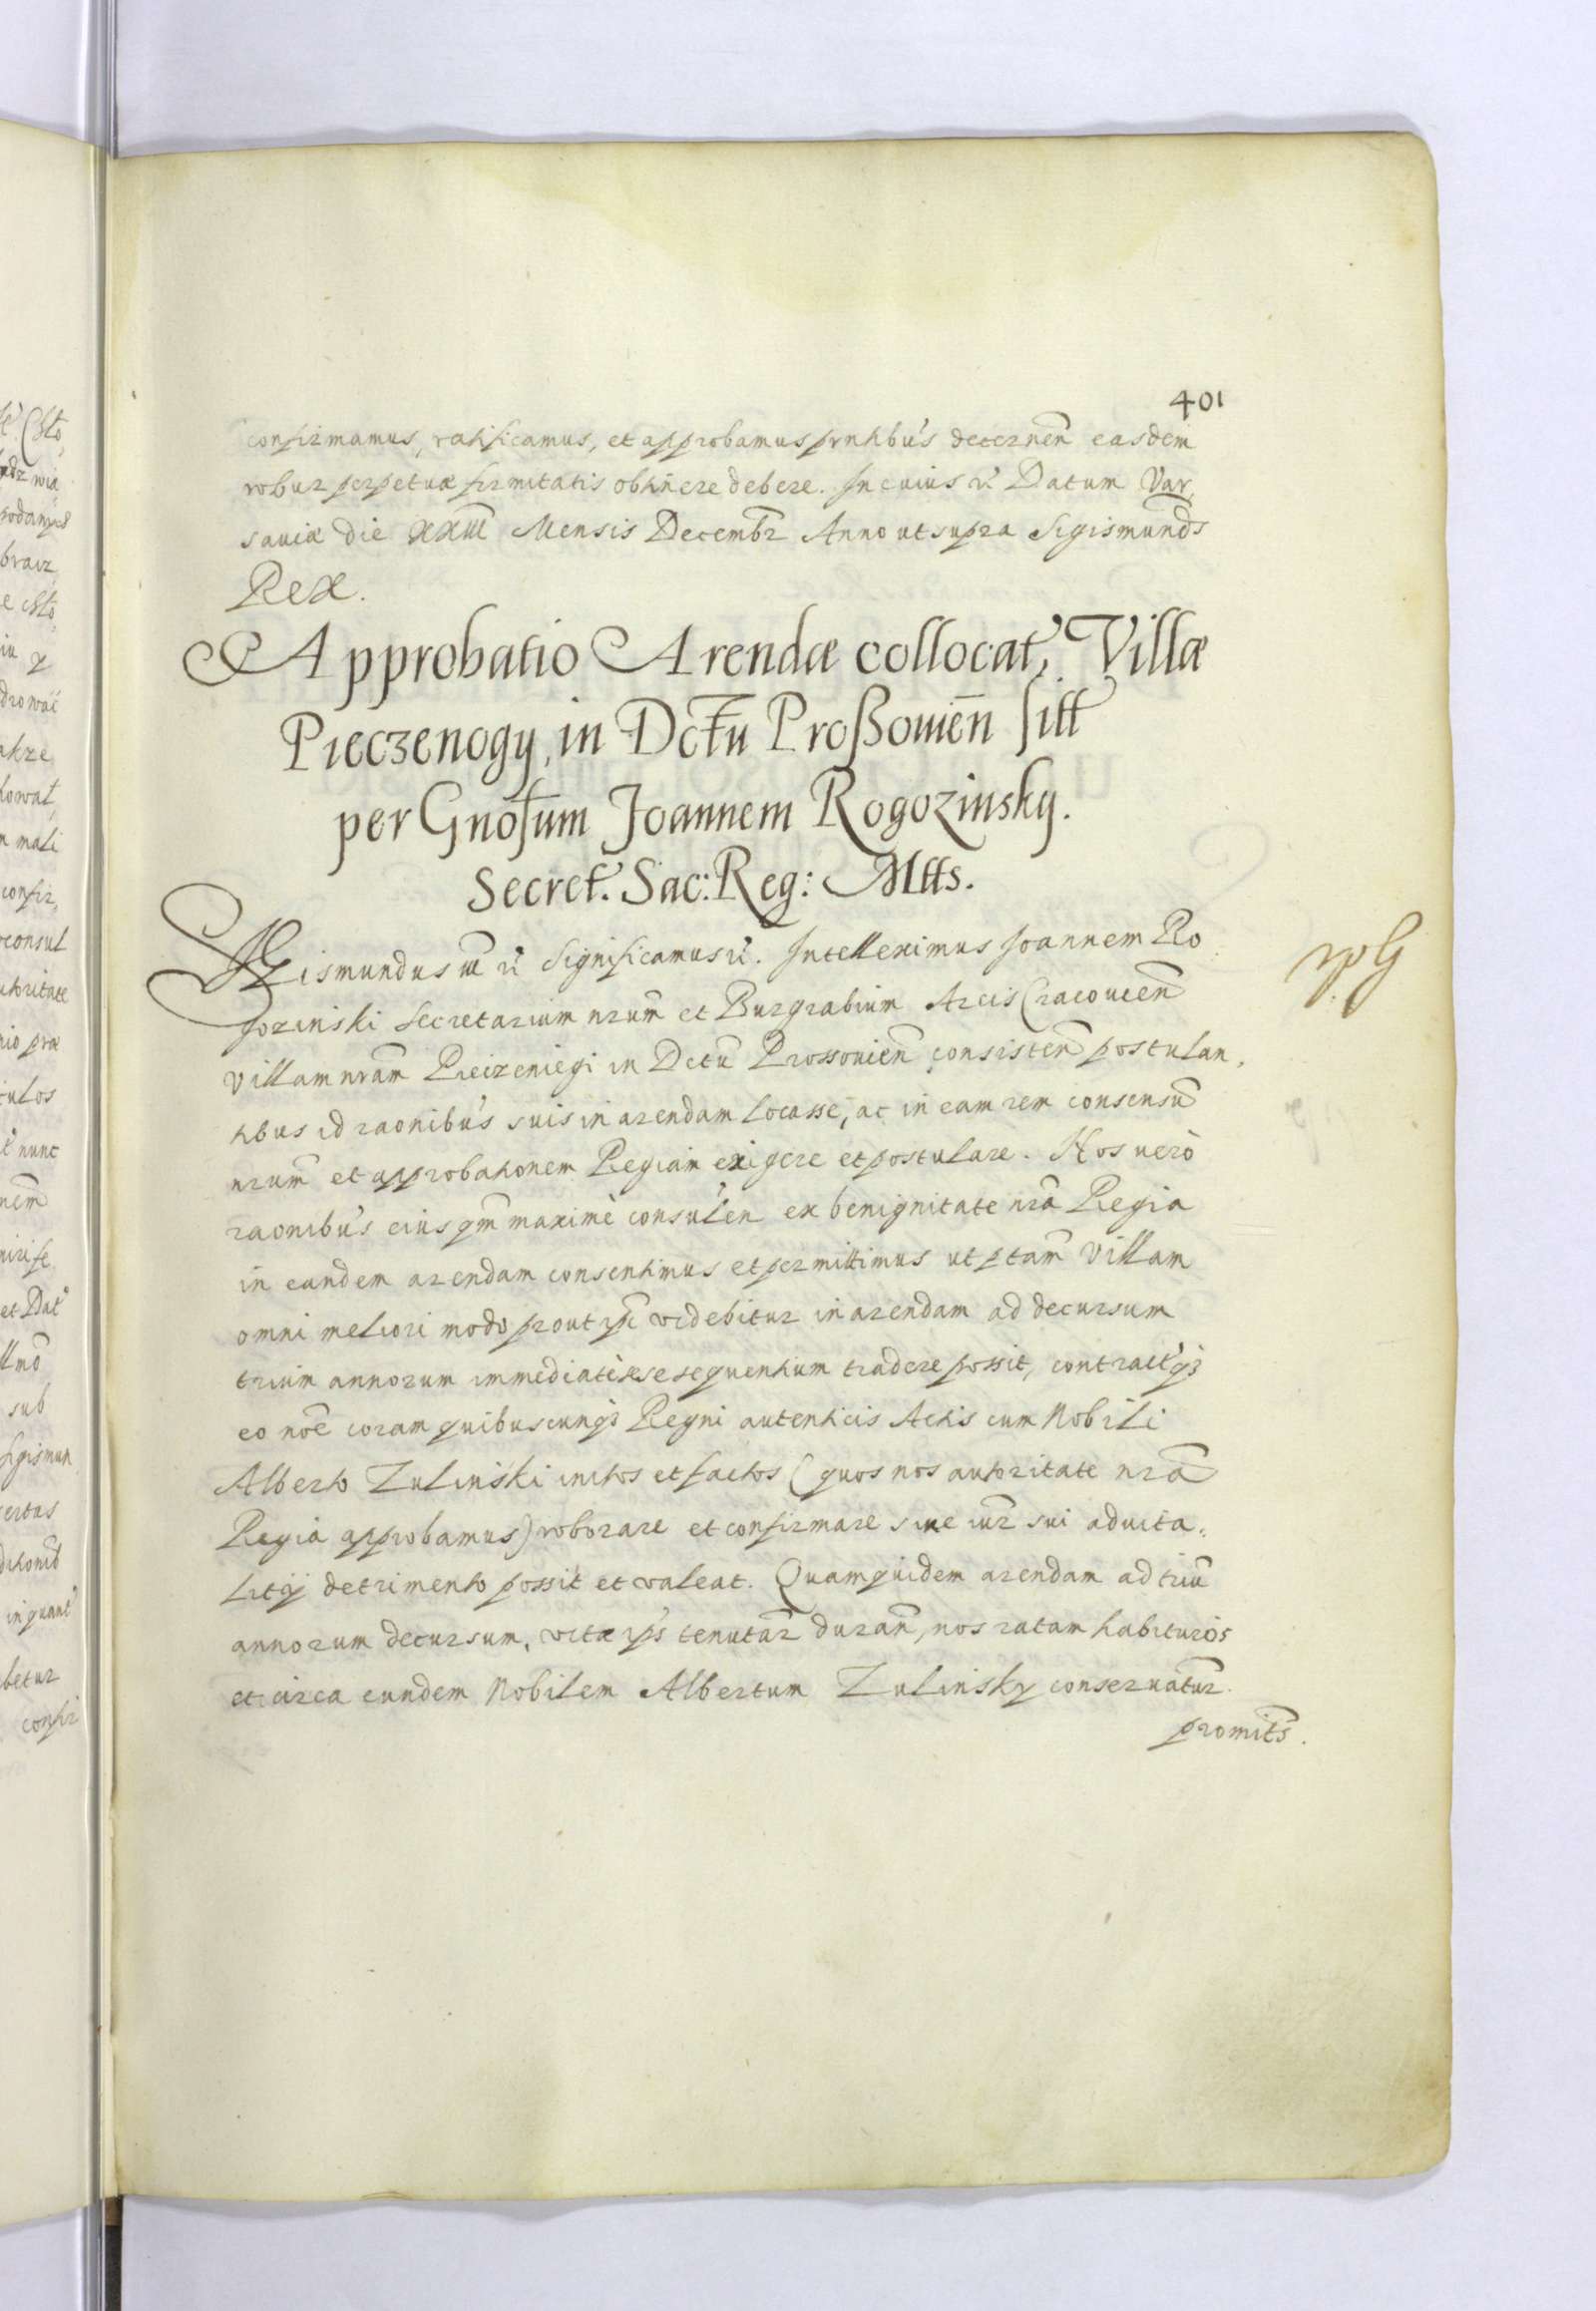 401
confirmamus, ratificamus, et approbamus prntibus decernen easdem
robur perpetuæ firmitatis obtinere debere. In cuius rei Datum Var,
saviæ die XXIII Mensis Decembr Anno ut supra Sigismunds
Rex.
Approbatio Arendæ collocat, Villæ
Pieczenogy, in Dctu Proßovien sitt
per Gnosum Joannem Rogozinsky.
Secret. Sac: Reg: Mtts.
Sigismundus III rc Significamus rc. Intelleximus Joannem Ro
gozinski Secretarium nrum et Burgrabium Arcis Cracovien
Villam nram Pieczeniegi in Dctu Prossovien consisten postulan,
tibus id raonibus suis in arendam locasse, ac in eam rem consensu
nrum et approbationem Regiam exigere et postulare. Nos vero
raonibus eius qm maximè consulen ex benignitate nra Regia
in eandem arendam consentimus et permittimus ut ptam Villam
omni meliori modo prout ipi videbitur in arendam ad decursum
trium annorum immediatè se sequentium tradere possit, contractq3
eo noe coram quibuscunq3 Regni autenticis Actis cum Nobili
Alberto Zulinski initos et factos (quos nos autoritate nra
Regia approbamus) roborare et confirmare sine iur sui advita,
litij detrimento possit et valeat. Quamquidem arendam ad triu
annorum decursum, vita ips tenutar duran, nos ratam habituros
et circa eundem Nobilem Albertum Zulinsky conservatur
promitts.